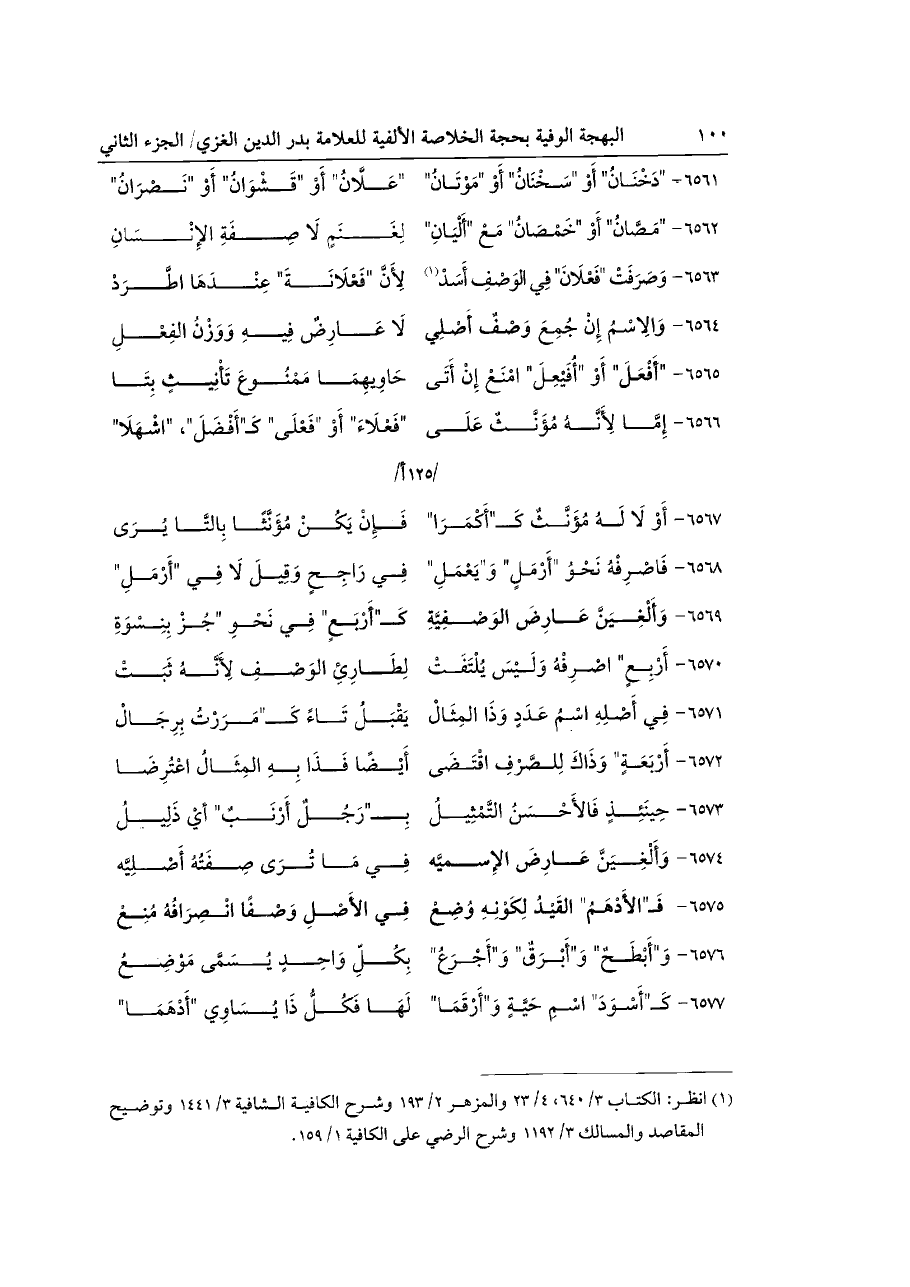 ١٠٠ البهجة الوفية بحجة الخلاصة الألفية للعلامة بدر الدين الغزي/ الجزء الثاني
٦٥٦١- "دَخْنَانُ" أَوْ "سَخْنَانُ" أَوْ "مَوْتَانُ" "عَلَّانُ" أَوْ "قَشْوَانُ" أَوْ "نَصْرَانُ"
٦٥٦٢- "مَصَّانُ" أَوْ "خَمْصَانُ" مَعْ "أَلْيَانِ" لِغَنَمٍ لَا صِفَةِ الإِنْسَانِ
٦٥٦٣- وَصَرَفَتْ "فَعْلَانَ" فِي الوَصْفِ أَسَدْ(١) لِأَنَّ "فَعْلَانَةَ" عِنْدَهَا اطَّرَدْ
٦٥٦٤- وَالِاسْمُ إِنْ جُمِعَ وَصْفٌ أَصْلِي لَا عَارِضٌ فِيهِ وَوَزْنُ الفِعْلِ
٦٥٦٥- "أَفْعَلَ" أَوْ "أُفَيْعِلَ" امْنَعْ إِنْ أَتَى حَاوِيهِمَا مَمْنُوعَ تَأْنِيثٍ بِتَا
٦٥٦٦- إِمَّا لِأَنَّهُ مُؤَنَّثٌ عَلَى "فَعْلَاءَ" أَوْ "فَعْلَى" كَـ"أَفْضَلَ"، "اشْهَلَا"
/١٢٥أ/
٦٥٦٧- أَوْ لَا لَهُ مُؤَنَّثٌ كَـ"أَكْمَرَا" فَإِنْ يَكُنْ مُؤَنَّثًا بِالتَّا يُرَى
٦٥٦٨- فَاصْرِفْهُ نَحْوُ "أَرْمَلٍ" وَ"يَعْمَلِ" فِي رَاجِحٍ وَقِيلَ لَا فِي "أَرْمَلِ"
٦٥٦٩- وَأَلْغِيَنَّ عَارِضَ الوَصْفِيَّةِ كَـ"أَرْبَعٍ" فِي نَحْوِ "جُزْ بِنِسْوَةِ
٦٥٧٠- أَرْبِعٍ" اصْرِفْهُ وَلَيْسَ يُلْتَفَتْ لِطَارِئِ الوَصْفِ لِأَنَّهُ ثَبَتْ
٦٥٧١- فِي أَصْلِهِ اسْمُ عَدَدٍ وَذَا المِثَالْ يَقْبَلُ تَاءً كَـ"مَرَرْتُ بِرِجَالْ
٦٥٧٢- أَرْبَعَةٍ" وَذَاكَ لِلصَّرْفِ اقْتَضَى أَيْضًا فَذَا بِهِ المِثَالُ اعْتُرِضَا
٦٥٧٣- حِينَئِذٍ فَالأَحْسَنُ التَّمْثِيلُ بِـ"رَجُلٌ أَرْنَبٌ" أَيْ ذَلِيلُ
٦٥٧٤- وَأَلْغِيَنَّ عَارِضَ الإِسمِيَّه فِي مَا تُرَى صِفَتُهُ أَصْلِيَّه
٦٥٧٥- فَـ"الأَدْهَمُ" القَيْدُ لِكَوْنِهِ وُضِعْ فِي الأَصْلِ وَصْفًا انْصِرَافُهُ مُنِعْ
٦٥٧٦- وَ"أَبْطَحٌ" وَ"أَبْرَقٌ" وَ"أَجْرَعُ" بِكُلِّ وَاحِدٍ يُسَمَّى مَوْضِعُ
٦٥٧٧- كَـ"أَسْوَدَ" اسْمِ حَيَّةٍ وَ"أَرْقَمَا" لَهَا فَكُلُّ ذَا يُسَاوِي "أَدْهَمَا"
(١) انظر: الكتاب ٣/ ٦٤٠، ٤/ ٢٣ والمزهر ٢/ ١٩٣ وشرح الكافية الشافية ٣/ ١٤٤١ وتوضيح
المقاصد والمسالك ٣/ ١١٩٢ وشرح الرضي على الكافية ١/ ١٥٩.